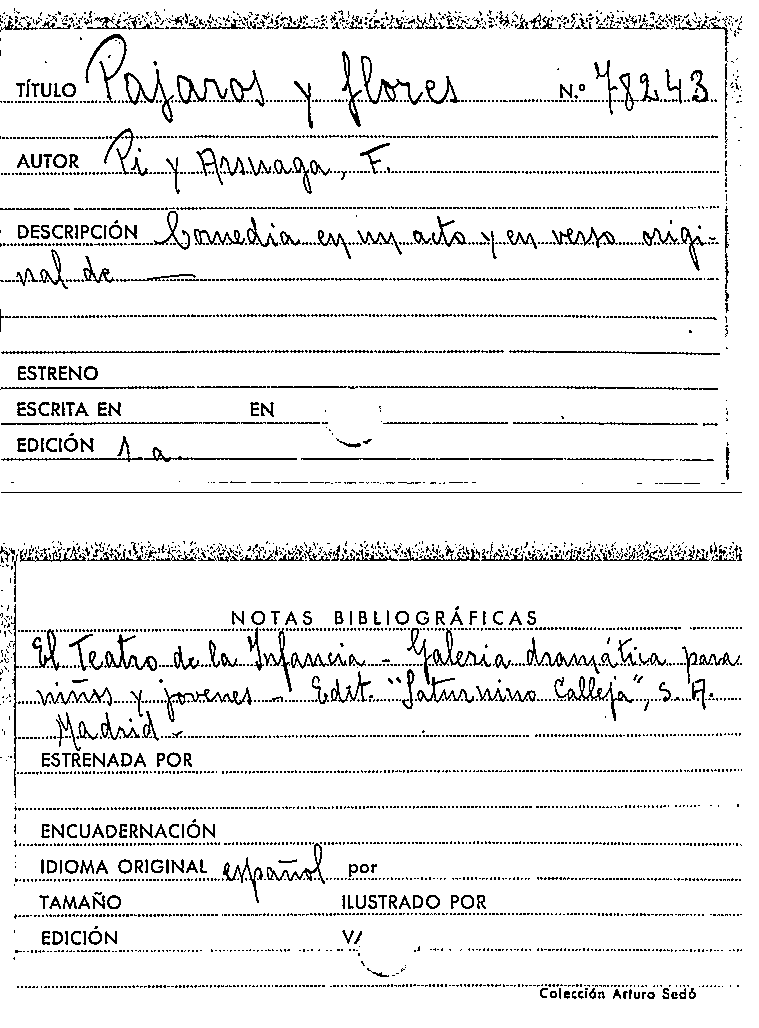 TÍTULO Pajaros y flores N.º 78243
AUTOR Pi y Arsuaga, F.
DESCRIPCIÓN Comedia en un acto y en verso origi-
nal de —
ESTRENO
ESCRITA EN EN
EDICIÓN 1 a.
NOTAS BIBLIOGRÁFICAS
El Teatro de la Infancia - Galeria dramática para
niños y jovenes - Edit. "Saturnino Calleja", S. A.
Madrid -
ESTRENADA POR
ENCUADERNACIÓN
IDIOMA ORIGINAL español por
TAMAÑO ILUSTRADO POR
EDICIÓN
Colección Arturo Sedó